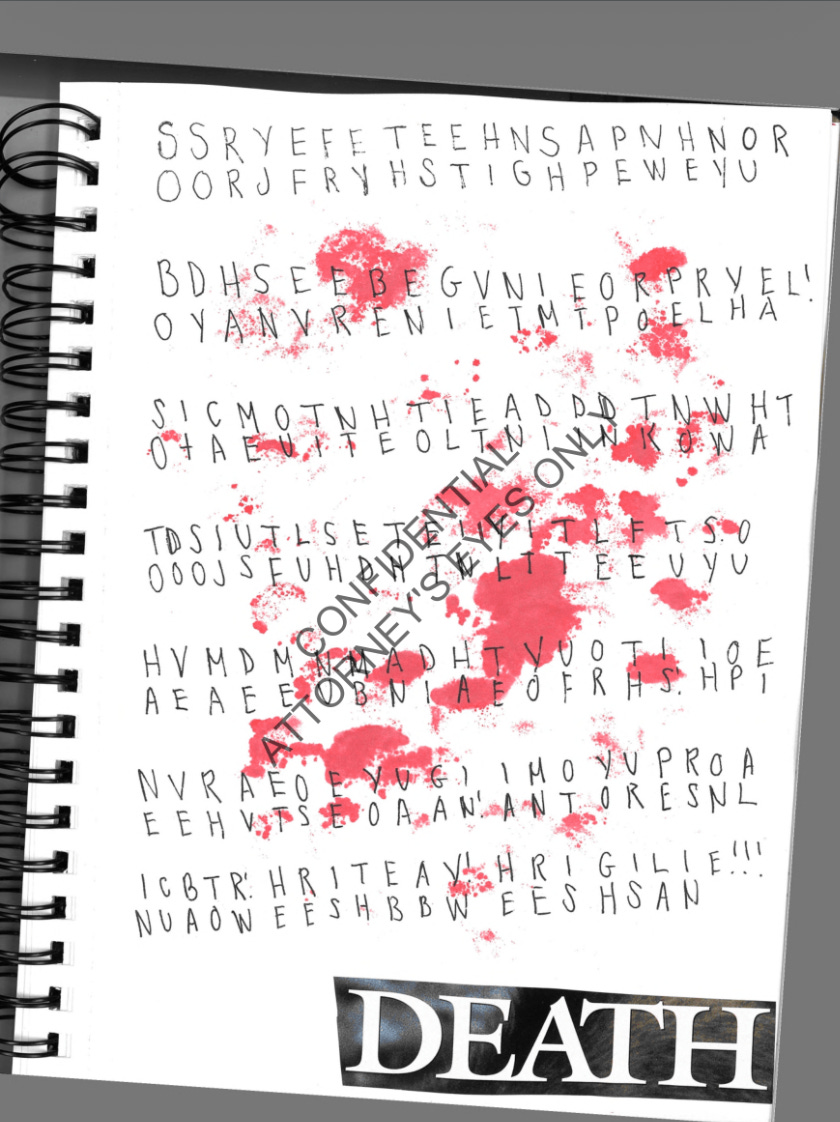 S S R Y E F E T E E H N S A P N H N O R
O O R J F R Y H S T I G H P E W E Y U
B D H S E E B E G V N I E O R P R Y E L!
O Y A N V R E N I E T M T P O E L H A
S I C M O T N H T I E A D D D T N W H T
O t A E U I T E O L T N I I N K O W A
T D S I U T L S E T E I Y I T L F T S. O
O O O J S F U H D H T N L T T E E U Y U
H V M D M N M A D H T Y U O T I I O E
A E A E E U B N I A E O F R H S. H P I
N V R A E O E Y U G I I M O Y U P R O A
E E H V T S E O A A N! A N T O R E S N L
I C B T R! H R I T E A Y! H R I G I L I E!!!
N U A O W E E S H B B W E E S H S A N
CONFIDENTIAL
ATTORNEY'S EYES ONLY
DEATH